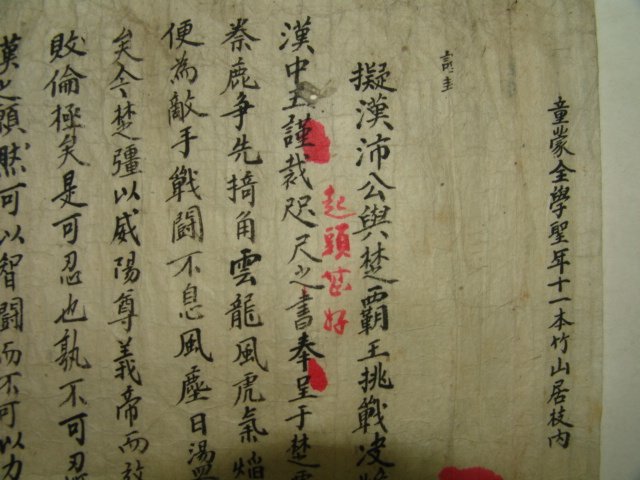 童蒙全學聖年十一本竹山居校內
擬漢沛公與楚霸王挑戰決
起頭甚好
漢中王謹裁咫尺之書奉呈于楚霸
秦鹿爭先掎角雲龍風虎氣焰
便為敵手戰鬪不息風塵日盪
矣今楚彊以威陽尊義帝而放
敗倫極矣是可忍也孰不可忍
漢之願然可以智鬪而不可以力